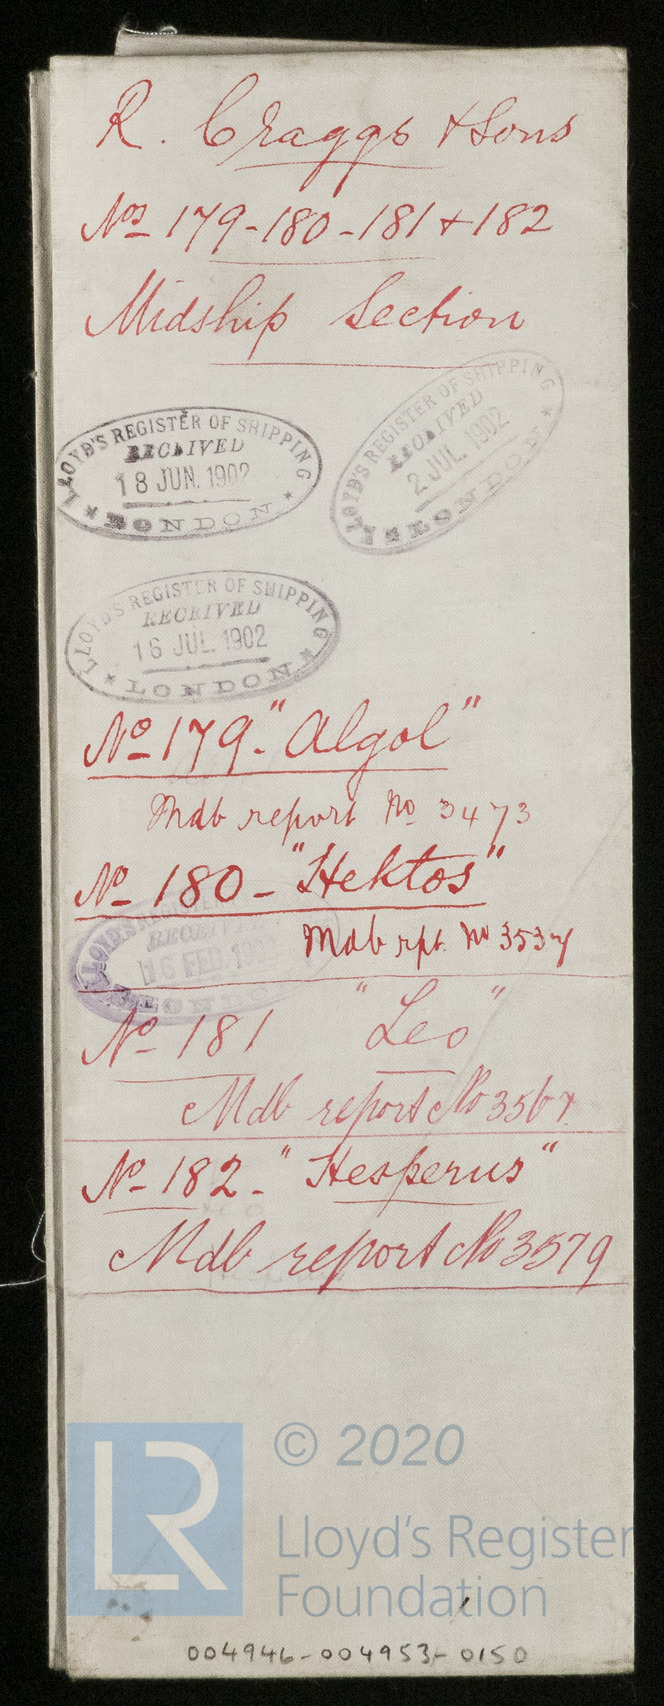 R. Craggs & Sons
Nos 179-180-181 & 182
Midship Section
LLOYD'S REGISTER OF SHIPPING
RECEIVED
18 JUN. 1902
LONDON
LLOYD'S REGISTER OF SHIPPING
RECEIVED
2 JUL. 1902
LONDON
LLOYD'S REGISTER OF SHIPPING
RECEIVED
16 JUL. 1902
LONDON
No 179. "Algol"
Mdb report No 3473
No 180 - "Hektos"
Mdb rpt. No 3537
LLOYD'S REGISTER
RECEIVED
16 FEB. 
LONDON
No 181 "Leo"
Mdb report No 3567
No 182 - "Hesperus"
Mdb report No 3579
LR
© 2020
Lloyd's Register
Foundation
004946-004953-0150